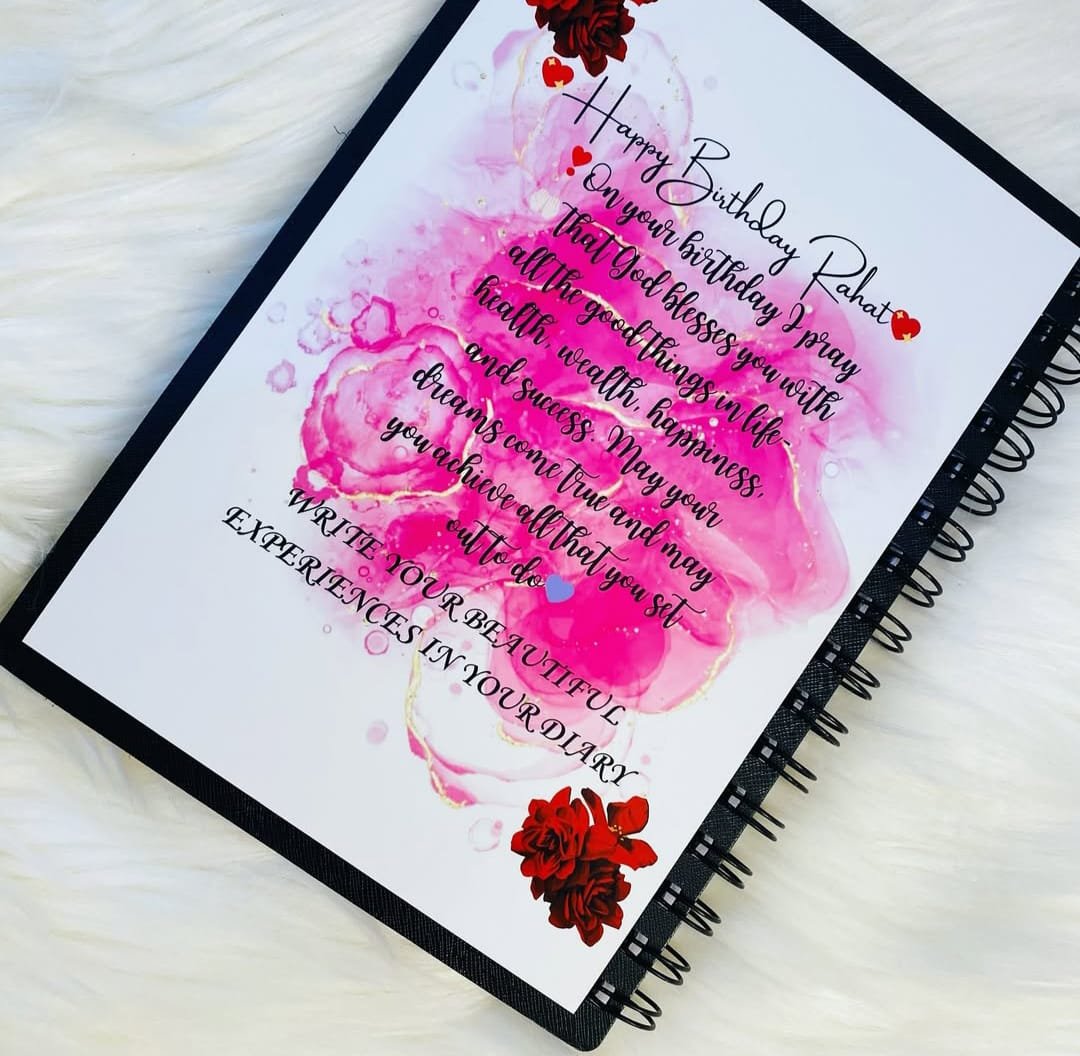 Happy Birthday Rahat
On your birthday I pray
that God blesses you with
all the good things in life-
health, wealth, happiness,
and success. May your
dreams come true and may
you achieve all that you set
out to do
WRITE YOUR BEAUTIFUL
EXPERIENCES IN YOUR DIARY